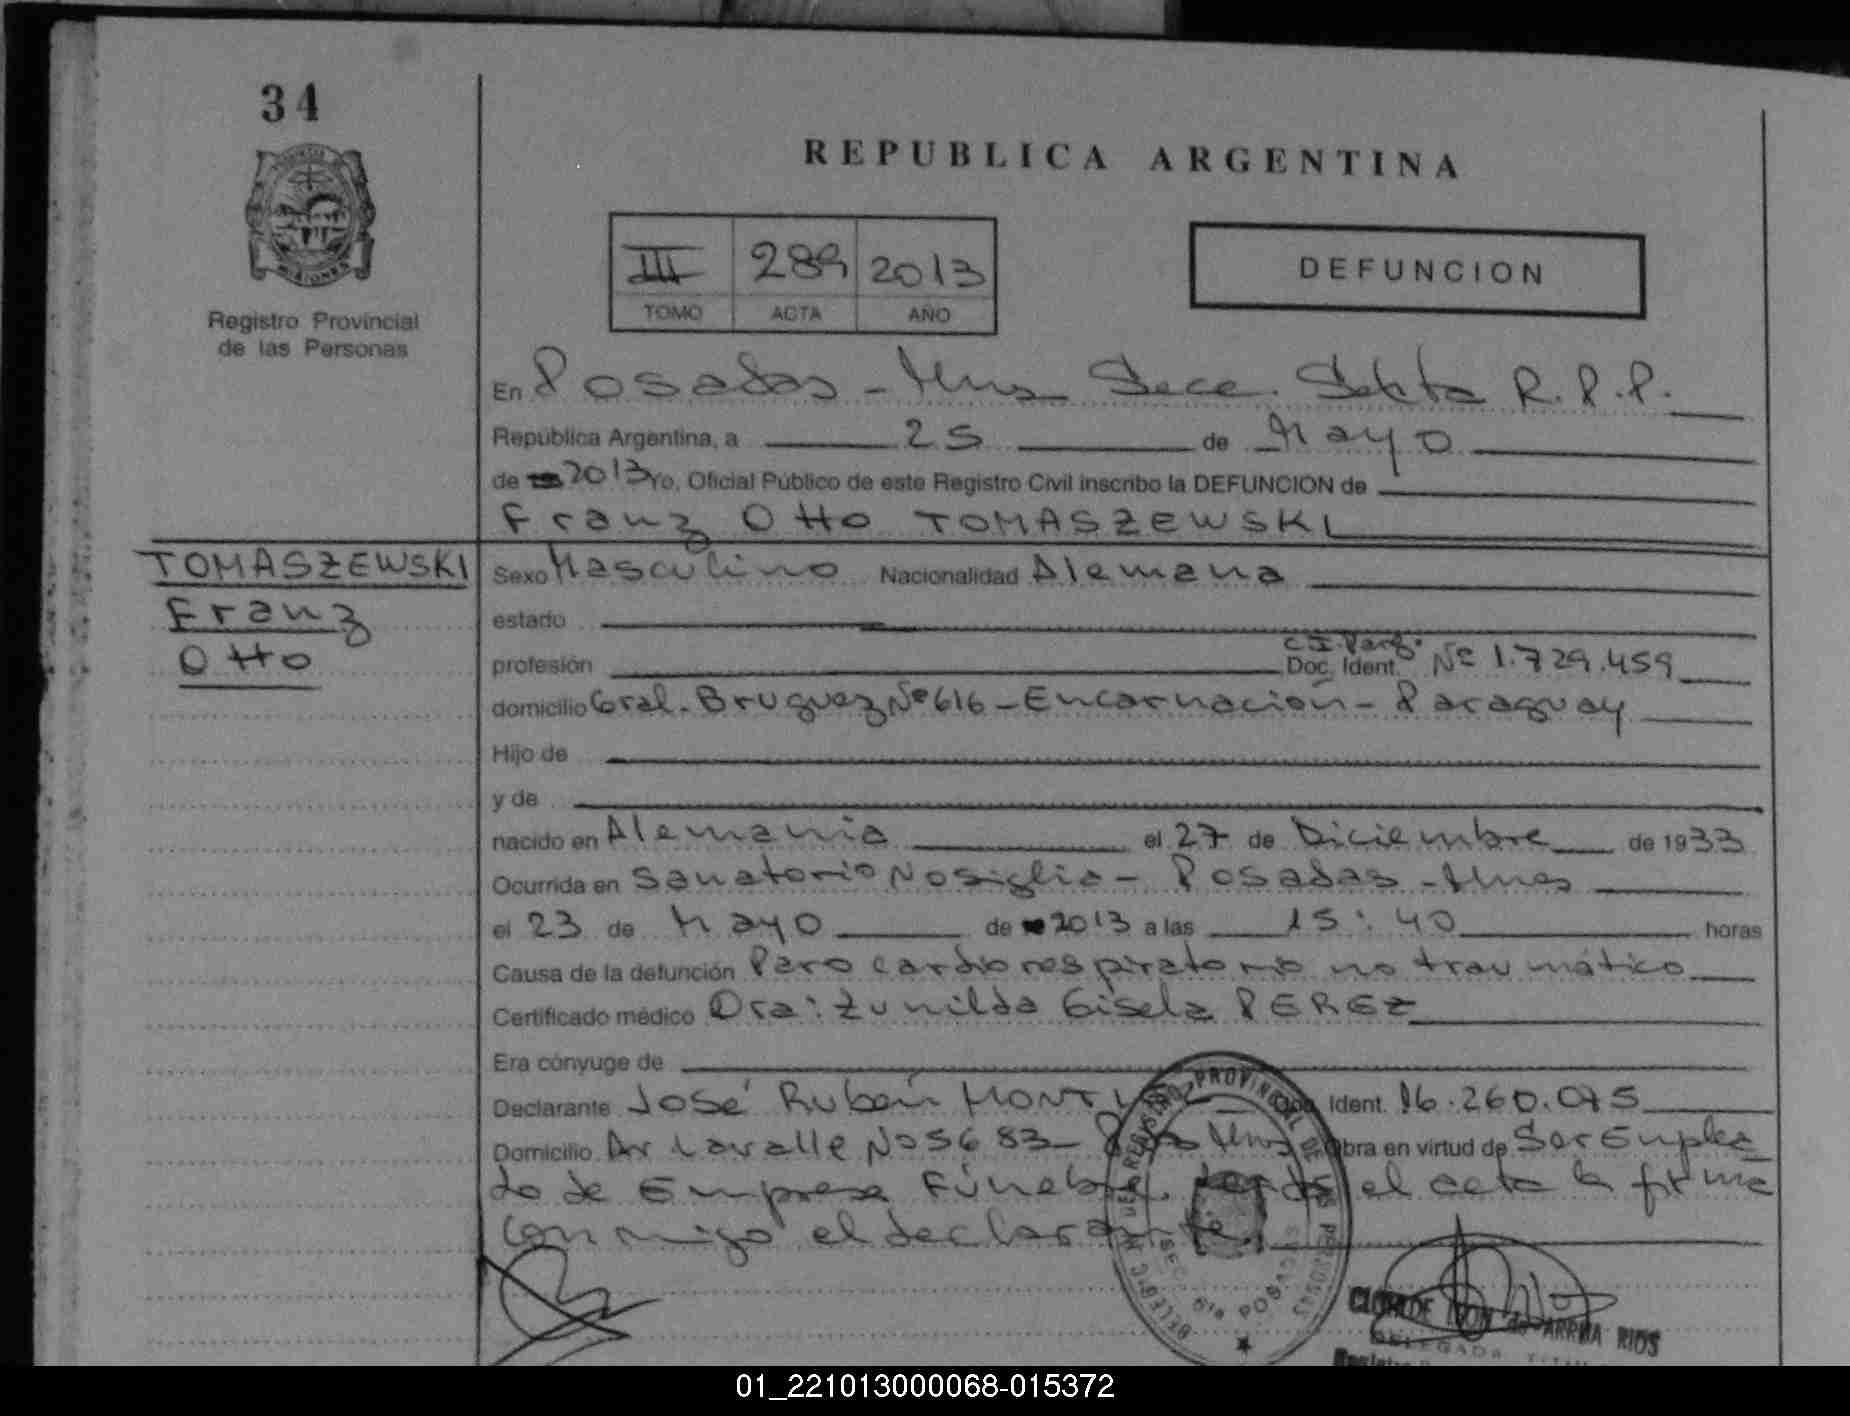 34
REPUBLICA ARGENTINA
PROVINCIA DE
MISIONES
Registro Provincial
de las Personas
III 289 2013
TOMO ACTA AÑO
DEFUNCION
En Posadas - Mnes Secc. Sexta R.P.P.
República Argentina, a 25 de Mayo
de 2013 Yo, Oficial Público de este Registro Civil inscribo la DEFUNCION de
Franz Otto TOMASZEWSKI
TOMASZEWSKI
Franz
Otto
Sexo Masculino Nacionalidad Alemana
estado
C.I. Parag.
profesión Doc. Ident. Nº 1.729.459
domicilio Gral. Bruguez Nº 616 - Encarnación - Paraguay
Hijo de
y de
nacido en Alemania el 27 de Diciembre de 1933
Ocurrida en Sanatorio Nosiglia - Posadas - Mnes
el 23 de Mayo de 2013 a las 15:40 horas
Causa de la defunción Paro cardiorespiratorio no traumático
Certificado médico Dra: Zunilda Gisela PEREZ
Era cónyuge de
Declarante José Rubén Doc. Ident. 16.260.075
Domicilio Av Lavalle Nº 5683 - Mnes Obra en virtud de Ser Emplea
do de Empresa Fúnebre. el acta la firma
conmigo el declarante.
REGISTRO PROVINCIAL DE LAS PERSONAS
SEC. 6ta POSADAS
DE ARRUA RIOS
DELEGADA
01_221013000068-015372